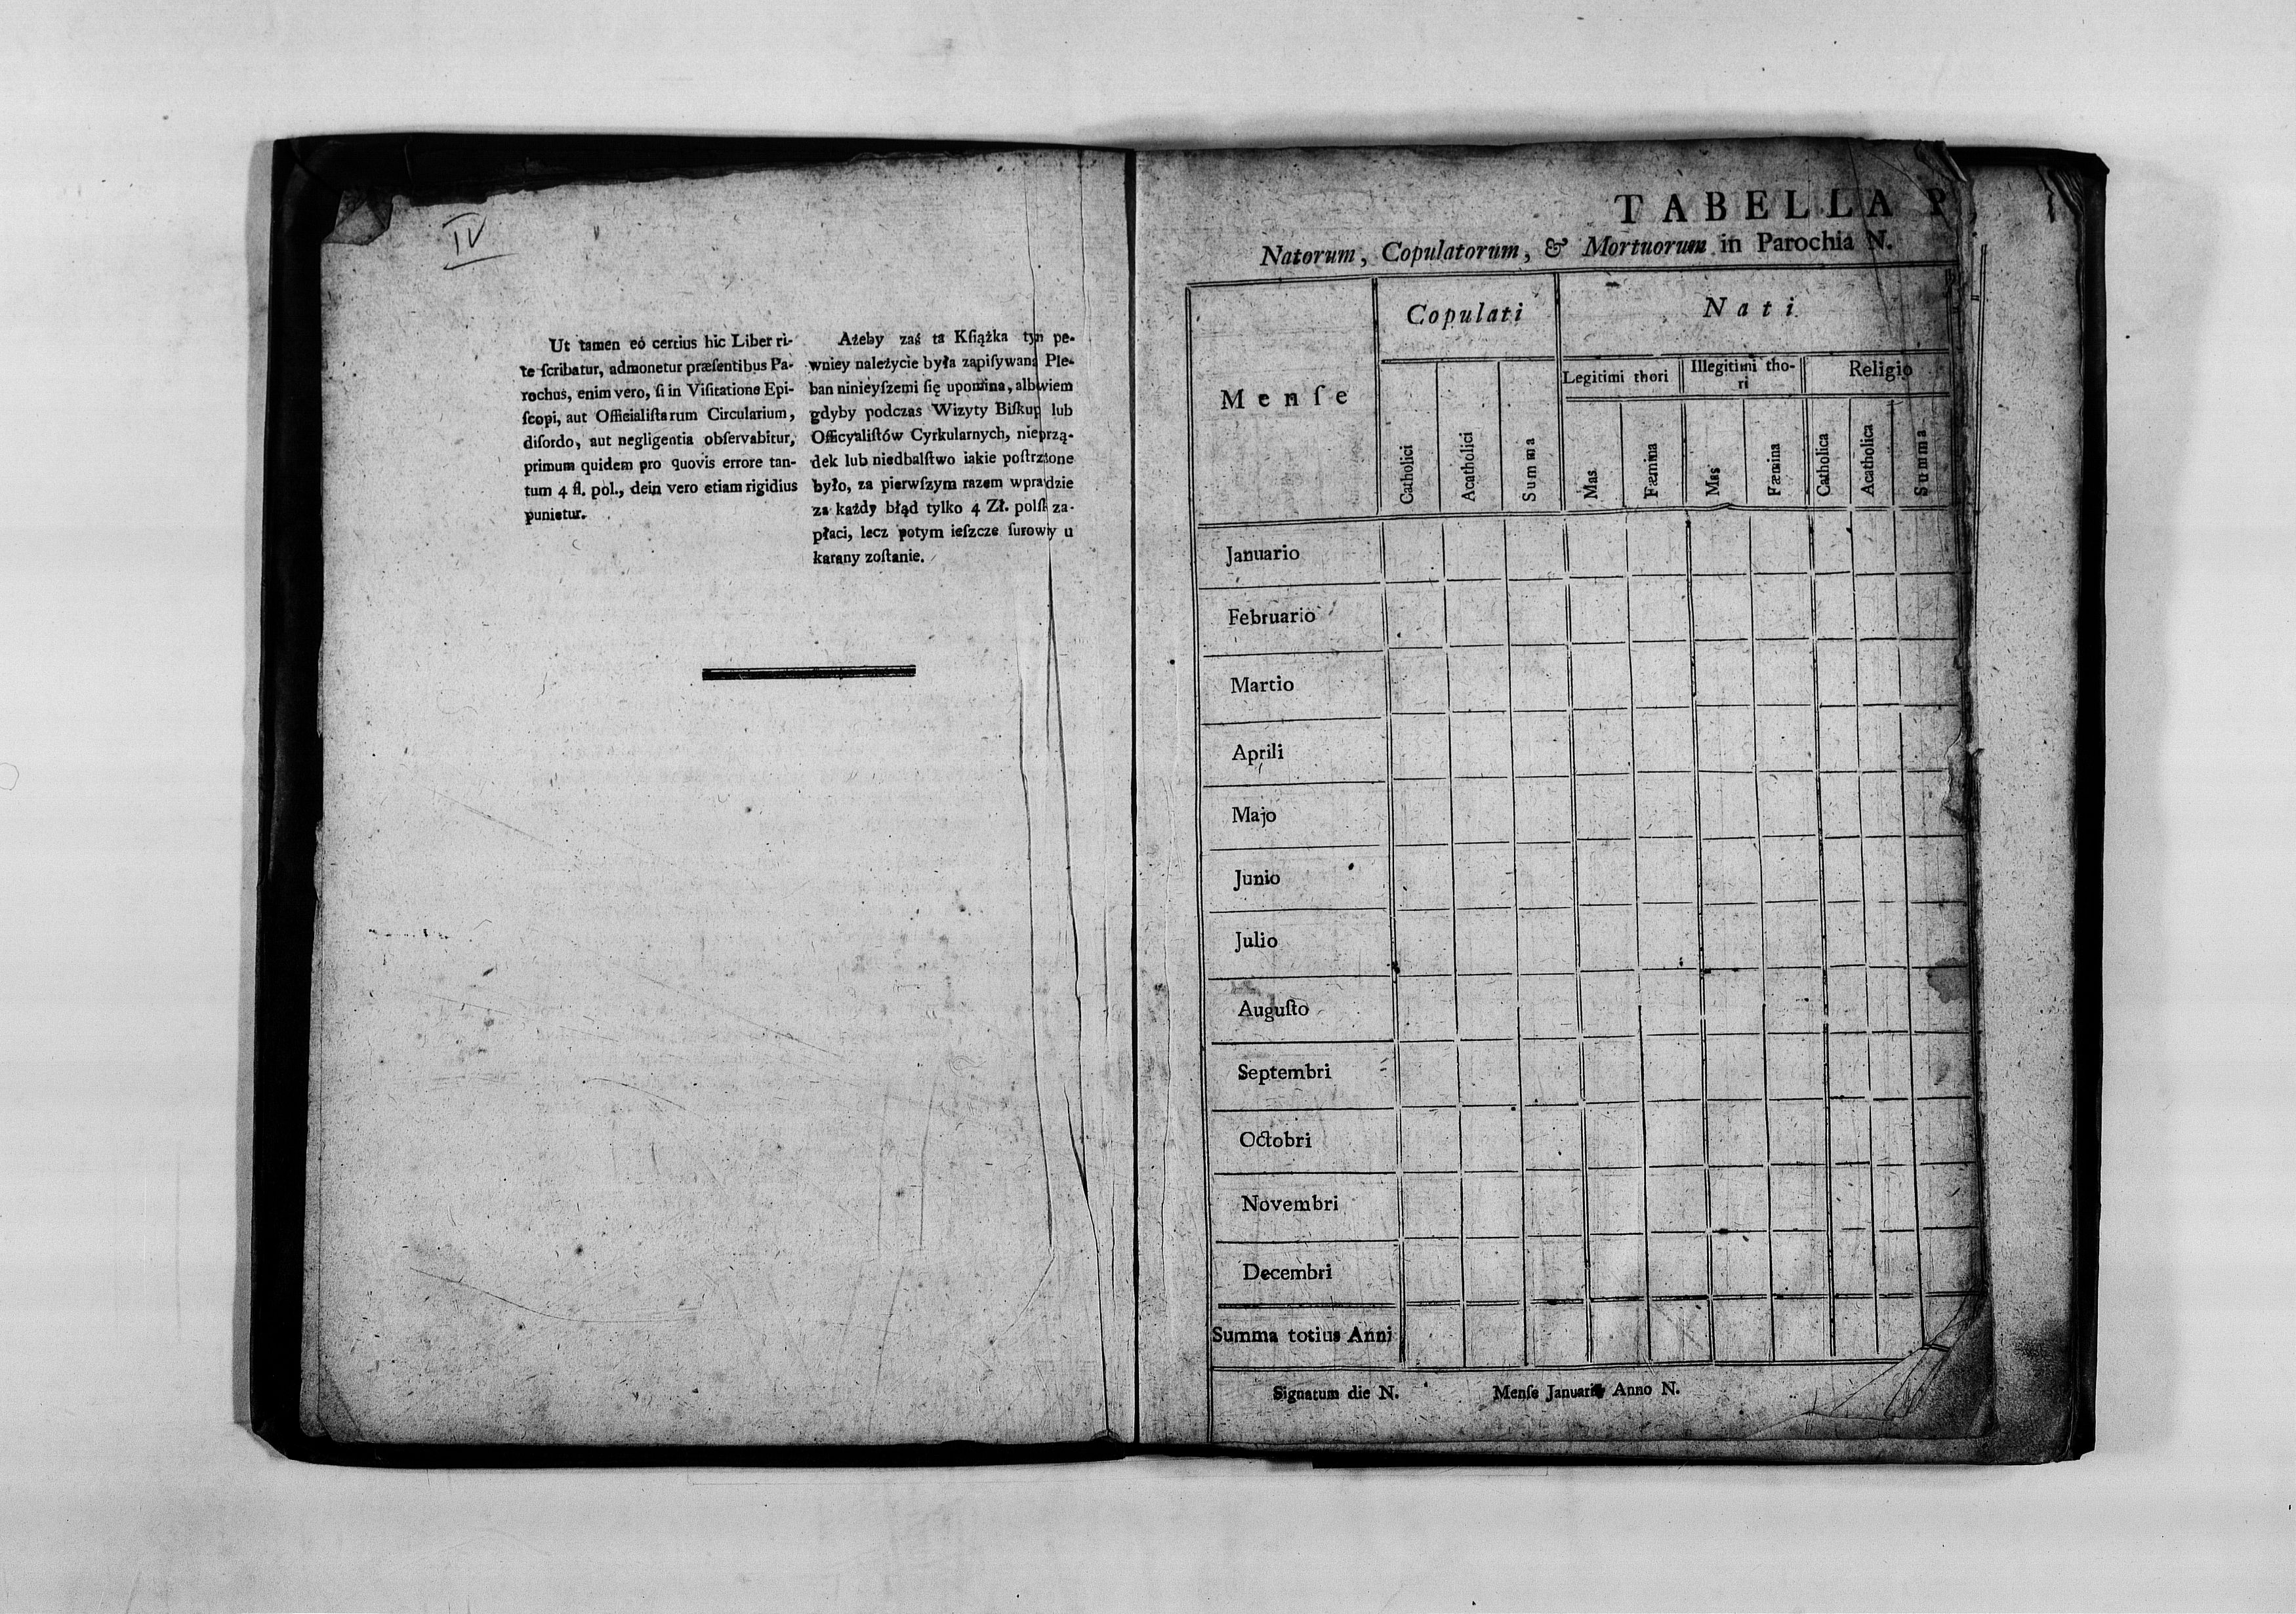 IV
Ut tamen eó certius hic Liber ri-
te ſcribatur, admonetur præſentibus Pa-
rochus, enim vero, ſi in Viſitatione Epi-
ſcopi, aut Officialiſtarum Circularium,
diſordo, aut negligentia obſervabitur,
primum quidem pro quovis errore tan-
tum 4 fl. pol., dein vero etiam rigidius
punietur.
Ażeby zaś ta Kſiążka tym pe-
wniey należycie była zapiſywana Ple-
ban ninieyſzemi ſię upomina, albowiem
gdyby podczas Wizyty Biſkup lub
Officyaliſtów Cyrkularnych, nieprzą-
dek lub niedbalſtwo iakie poſtrzżone
było, za pierwſzym razem wprawdzie
za każdy błąd tylko 4 Zł. polſk za-
płaci, lecz potym ieſzcze ſurowiy u
karany zoſtanie.
TABELLA P
Natorum, Copulatorum, & Mortuorum in Parochia N.
Menſe
Copulati
Nati
Legitimi thori
Illegitimi tho-
ri
Religio
Catholici
Acatholici
Summa
Mas
Fæmina
Mas
Fæmina
Catholica
Acatholica
Summa
Januario
Februario
Martio
Aprili
Majo
Junio
Julio
Auguſto
Septembri
Octobri
Novembri
Decembri
Summa totius Anni
Signatum die N. Menſe Januario Anno N.